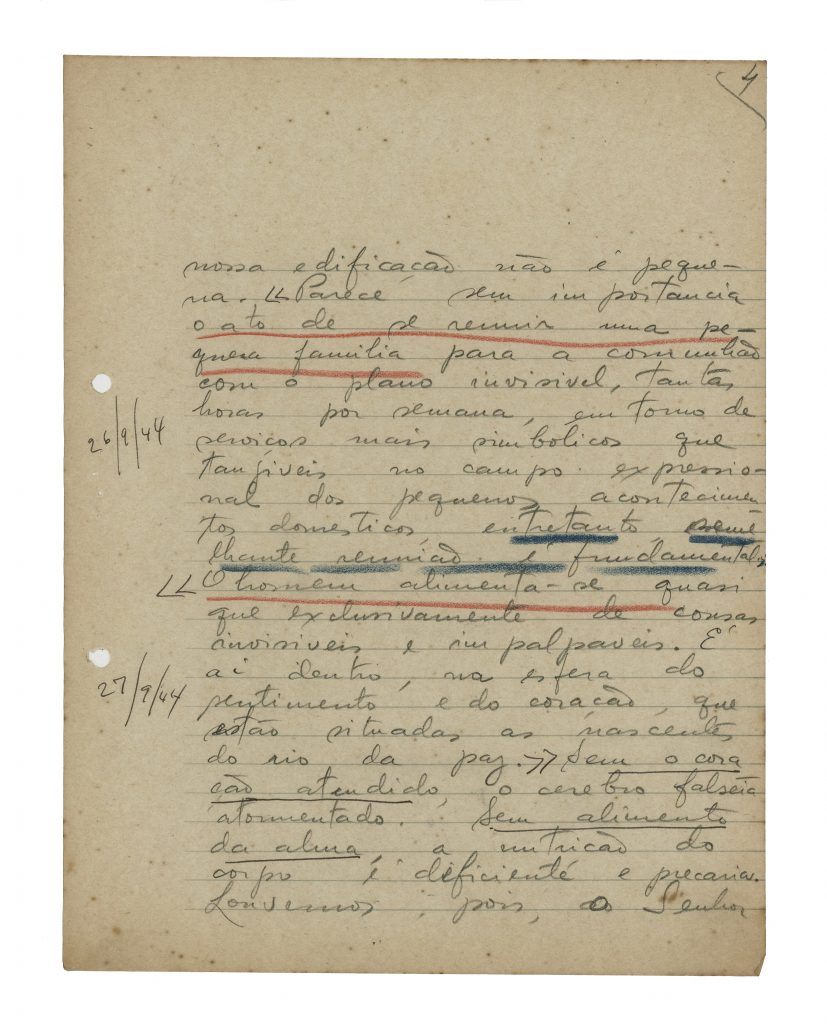 4
nossa edificação não é peque-
na. << Parece sem importancia
o ato de se reunir uma pe-
quena familia para a comunhão
com o plano invisivel, tantas
horas por semana, em torno de
26/9/44
serviços mais simbólicos que
tangiveis no campo expressio-
nal dos pequenos acontecimen
tos domesticos, entretanto, seme
lhante reunião é fundamental.
<< O homem alimenta-se quasi
que exclusivamente de cousas
invisiveis e impalpaveis. É
ai dentro, na esfera do
27/9/44
sentimento e do coração, que
estão situadas as nascentes
do rio da paz. >> Sem o cora
ção atendido, o cerebro falseia
atormentado. Sem alimento
da alma, a nutrição do
corpo é deficiente e precaria.
Louvemos, pois, ao Senhor